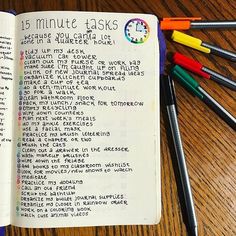 15 minute tasks
...because you can do a lot
done in a quarter hour!
tidy up my desk
vacuum cat tower
clean out my purse or work bag
make sure I'm caught up on filing
think of new journal spread ideas
organize kitchen cupboards
make a cup of tea
do a ten-minute workout
go for a walk
clean bathroom floor
pack my lunch/snack for tomorrow
empty recycling
wipe down counters
plan next week's meals
do my ankle exercises
meal a friend
practice my brush lettering
read a chapter or two
brush the cats
clean out a drawer in the dresser
wash makeup brushes
wipe down the fridge
add books to my classroom wishlist
look for movies/new shows to watch
meditate
practice my doodling
call an old friend
scrub the bathtub
organize my bullet journal supplies
organize my closet in rainbow order
work on a coloring book
watch cute animal videos